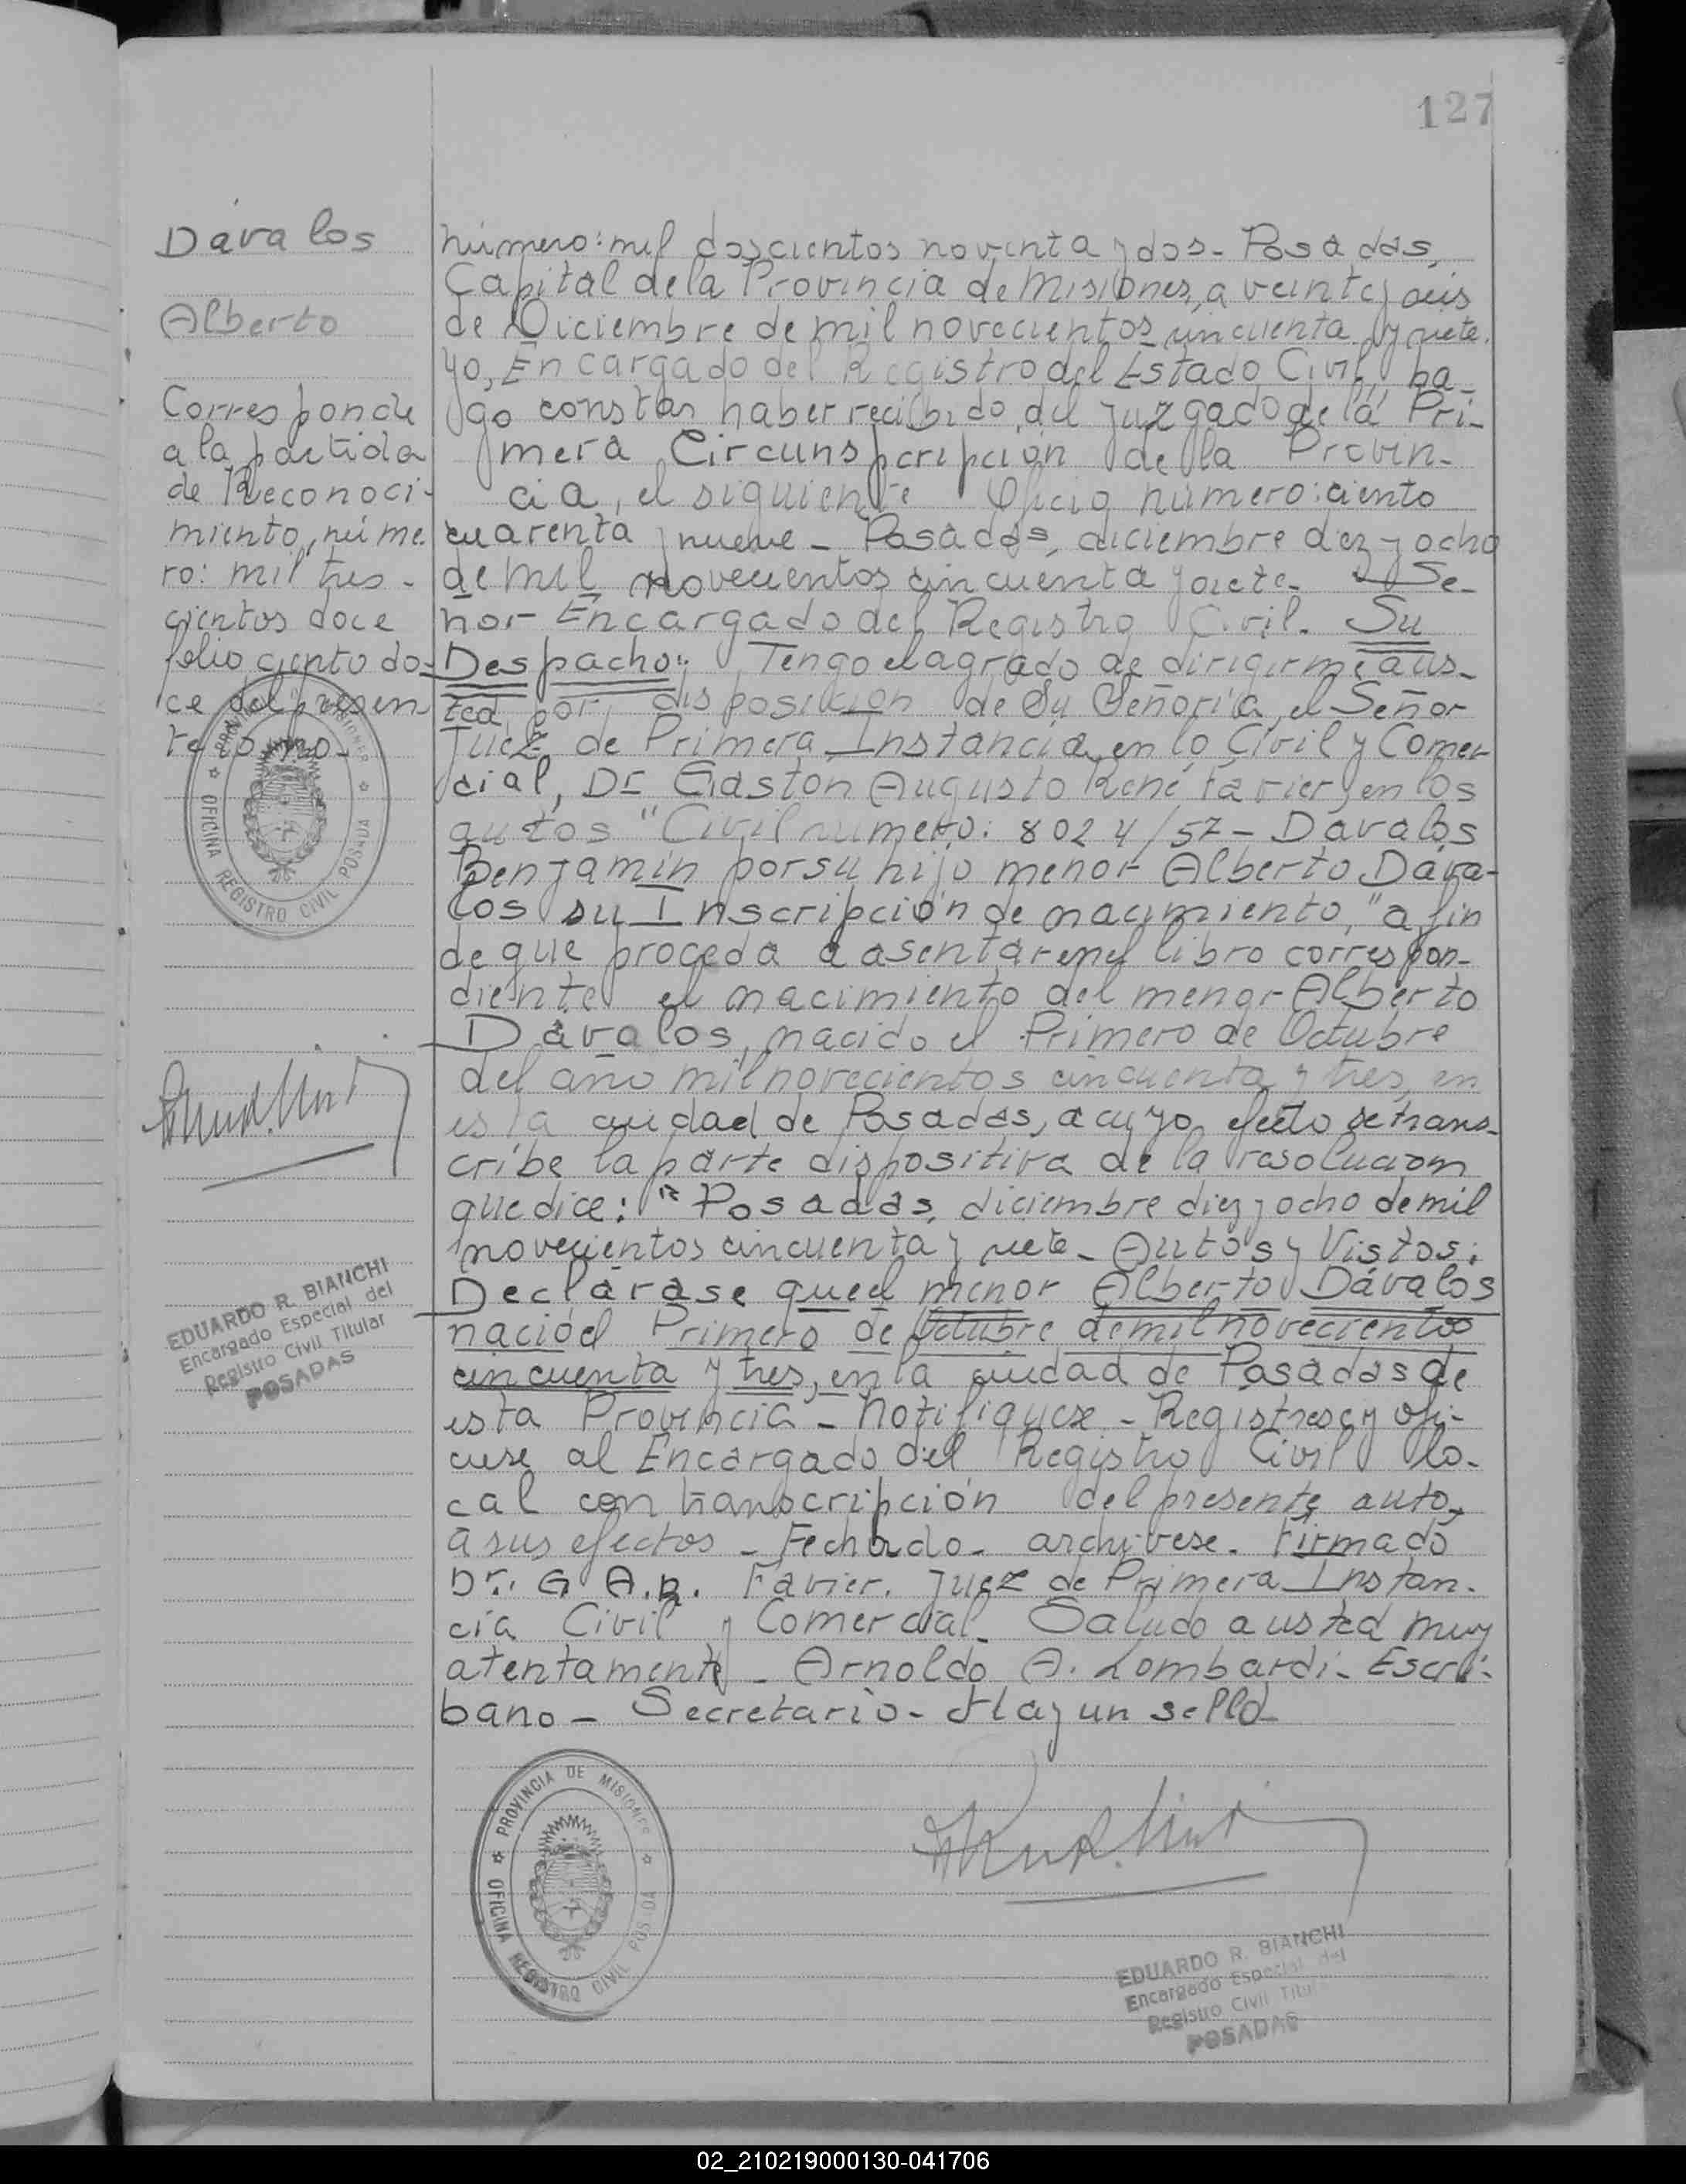 127
Dávalos
Alberto
Corresponde
a la partida
de Reconoci-
miento, núme
ro: mil tres-
cientos doce
folio ciento do-
ce del presen
te tomo-
número: mil doscientos noventa y dos- Posadas,
Capital de la Provincia de Misiones, a veinte y seis
de Diciembre de mil novecientos cincuenta y siete.
yo, Encargado del Registro del Estado Civil, ha-
go constar haber recibido, del Juzgado de la Pri-
mera Circunspcripción de la Provin-
cia, el siguiente Oficio número: ciento
cuarenta y nueve- Posadas, diciembre diez y ocho
de mil novecientos cincuenta y siete- Se-
ñor Encargado del Registro Civil. Su
Despacho: Tengo el agrado de dirigirme a us-
ted por disposición de Su Señoría, el Señor
Juez de Primera Instancia en lo Civil y Comer
cial, Dr Gastón Augusto René Favier, en los
autos "Civil número: 8024/57- Dávalos
Benjamín por su hijo menor Alberto Dáva-
los su Inscripción de nacimiento," a fin
de que proceda a asentar en el libro correspon-
diente el nacimiento del menor Alberto
Dávalos, nacido el Primero de Octubre
del año mil novecientos cincuenta y tres, en
esta ciudad de Posadas, a cuyo efecto se trans-
cribe la parte dispositiva de la resolución
que dice: "Posadas, diciembre diez y ocho de mil
novecientos cincuenta y siete- Autos y Vistos:
Declárase que el menor Alberto Dávalos
nació el Primero de Octubre de mil novecientos
cincuenta y tres, en la ciudad de Posadas de
esta Provincia- Notifíquese- Regístrese y ofí-
ciese al Encargado del Registro Civil lo-
cal con transcripción del presente auto,
a sus efectos- Fechado- archívese. Firmado
Dr. G A.R. Favier. Juez de Primera Instan-
cia Civil y Comercial- Saludo a usted muy
atentamente- Arnoldo A. Lombardi- Escri-
bano- Secretario- Hay un sello-
PROVINCIA DE MISIONES
OFICINA REGISTRO CIVIL POSADA
EDUARDO R. BIANCHI
Encargado Especial del
Registro Civil Titular
POSADAS
PROVINCIA DE MISIONES
OFICINA REGISTRO CIVIL POSADA
EDUARDO R. BIANCHI
Encargado Especial del
Registro Civil Titular
POSADAS
02_210219000130-041706